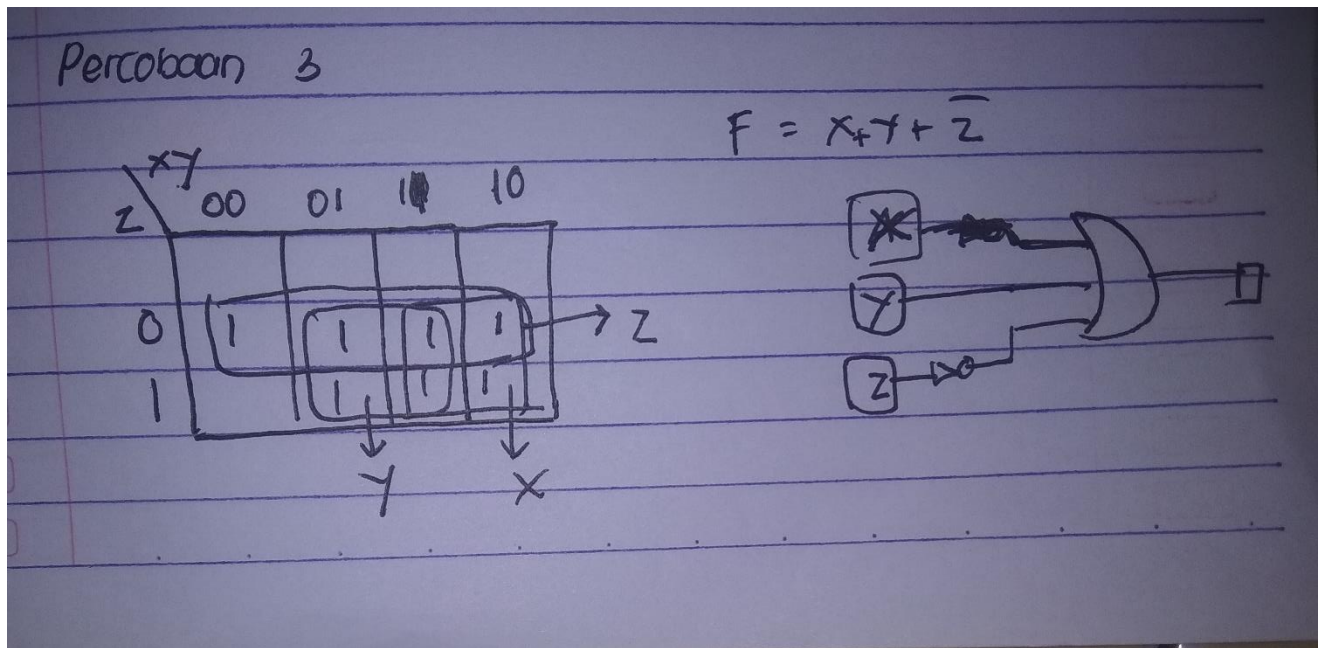 Percobaan 3
F = X+Y+Z̅
XY
Z 00 01 11 10
0 1 1 1 1 → Z
1 1 1 1
Y X
X
Y
Z